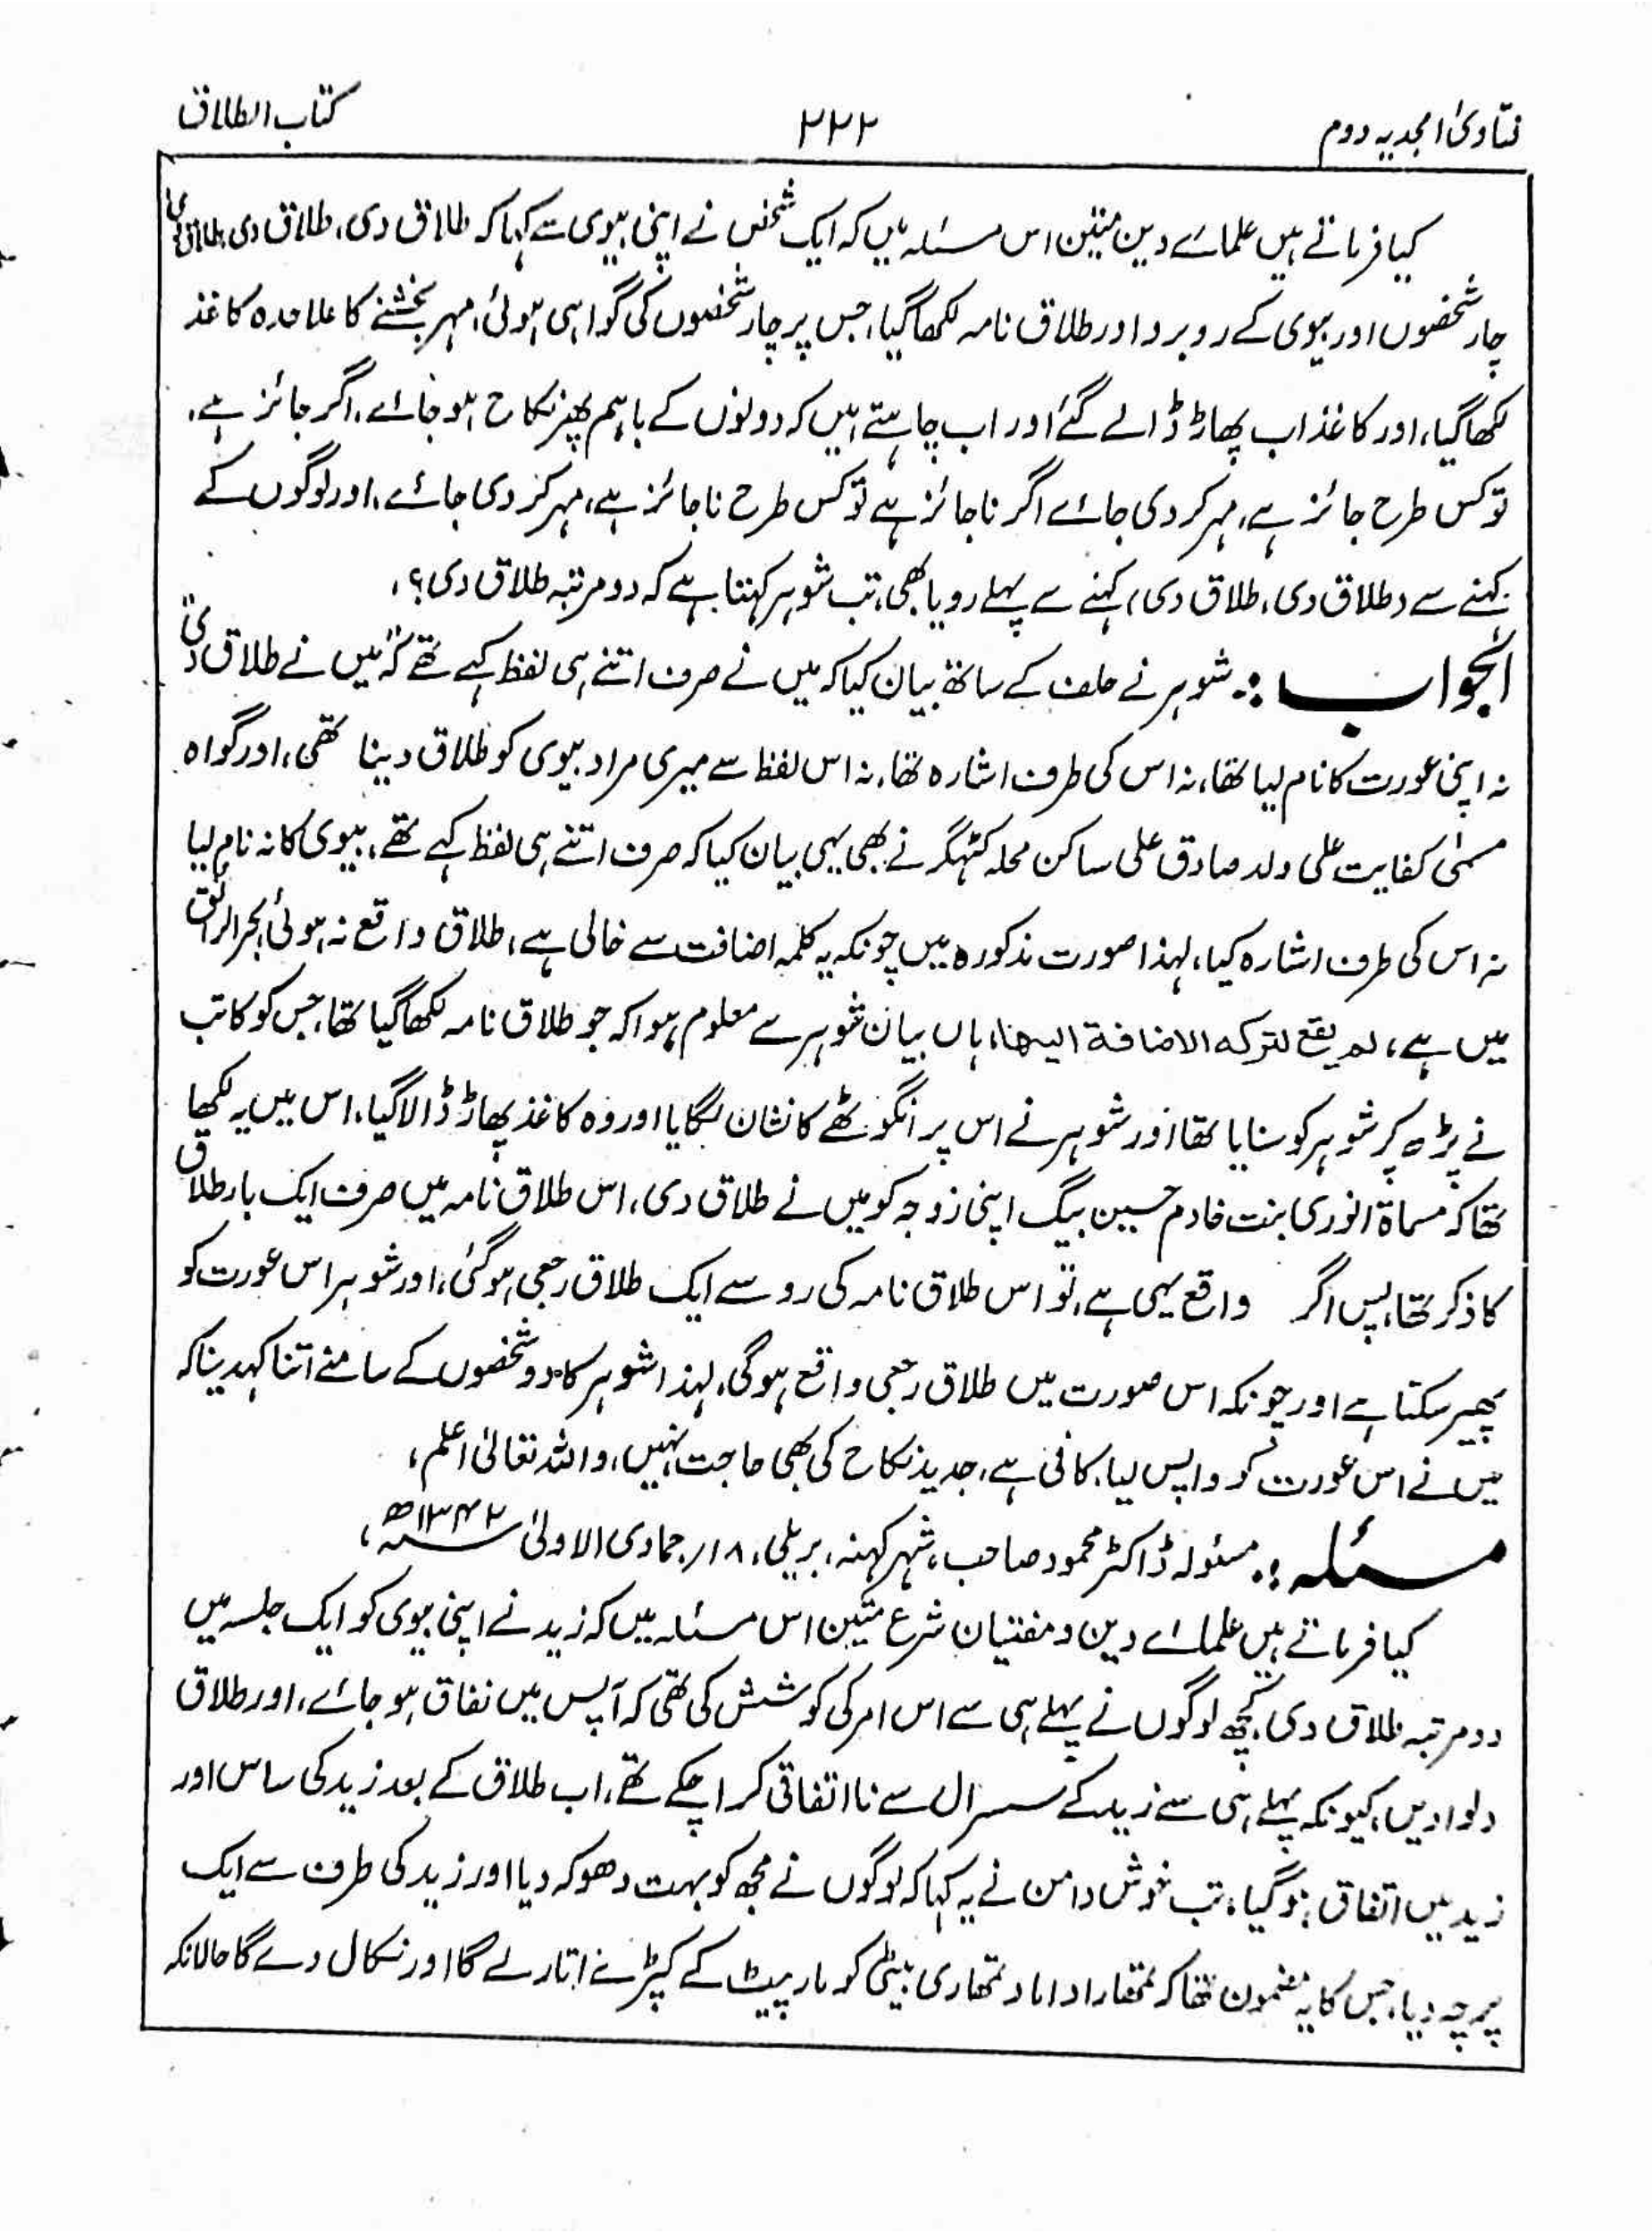 فتاویٰ امجدیہ دوم ۲۲۲ کتاب الطلاق
کیا فرماتے ہیں علمائے دین متین اس مسئلہ میں کہ ایک شخص نے اپنی بیوی سے کہا کہ طلاق دی، طلاق دی، طلاق دی
چار شخصوں اور بیوی کے روبرو اور طلاق نامہ لکھا گیا، جس پر چار شخصوں کی گواہی ہوئی، مہر بخشنے کا علاحدہ کاغذ
لکھا گیا، اور کاغذ اب پھاڑ ڈالے گئے اور اب چاہتے ہیں کہ دونوں کے باہم پھر نکاح ہو جائے، اگر جائز ہے،
تو کس طرح جائز ہے، مہر کر دی جائے اگر ناجائز ہے تو کس طرح ناجائز ہے، مہر کر دی جائے، اور لوگوں کے
کہنے سے (طلاق دی، طلاق دی) کہنے سے پہلے رویا بھی، تب شوہر کہتا ہے کہ دو مرتبہ طلاق دی؟،
الجواب :۔ شوہر نے حلف کے ساتھ بیان کیا کہ میں نے صرف اتنے ہی لفظ کہے تھے کہ "میں نے طلاق دی"
نہ اپنی عورت کا نام لیا تھا، نہ اس کی طرف اشارہ تھا، نہ اس لفظ سے میری مراد بیوی کو طلاق دینا تھی، اور گواہ
مسمیٰ کفایت علی ولد صادق علی ساکن محلہ کٹہگر نے بھی یہی بیان کیا کہ صرف اتنے ہی لفظ کہے تھے، بیوی کا نہ نام لیا
نہ اس کی طرف اشارہ کیا، لہذا صورت مذکورہ میں چونکہ یہ کلمہ اضافت سے خالی ہے، طلاق واقع نہ ہوئی، بحر الرائق
میں ہے، لم یقع لترکہ الاضافة الیھا، ہاں بیان شوہر سے معلوم ہوا کہ جو طلاق نامہ لکھا گیا تھا، جس کو کاتب
نے پڑھ کر شوہر کو سنایا تھا اور شوہر نے اس پر انگوٹھے کا نشان لگایا اور وہ کاغذ پھاڑ ڈالا گیا، اس میں یہ لکھا
تھا کہ مسماۃ انوری بنت خادم حسین بیگ اپنی زوجہ کو میں نے طلاق دی، اس طلاق نامہ میں صرف ایک بار طلاق
کا ذکر تھا، پس اگر واقع یہی ہے، تو اس طلاق نامہ کی رو سے ایک طلاق رجعی ہو گئی، اور شوہر اس عورت کو
پھیر سکتا ہے اور چونکہ اس صورت میں طلاق رجعی واقع ہو گی، لہذا شوہر کا دو شخصوں کے سامنے اتنا کہدینا کہ
میں نے اس عورت کو واپس لیا، کافی ہے، جدید نکاح کی بھی حاجت نہیں، واللہ تعالیٰ اعلم،
مسئلہ :۔ مسئولہ ڈاکٹر محمود صاحب، شہر کہنہ، بریلی، ۱۸؍ جمادی الاولیٰ ۱۳۴۲ھ،
کیا فرماتے ہیں علمائے دین و مفتیان شرع متین اس مسئلہ میں کہ زید نے اپنی بیوی کو ایک جلسہ میں
دو مرتبہ طلاق دی، کچھ لوگوں نے پہلے ہی سے اس امر کی کوشش کی تھی کہ آپس میں نفاق ہو جائے، اور طلاق
دلوادیں، کیونکہ پہلے ہی سے زید کے سسرال سے نااتفاقی کرا چکے تھے، اب طلاق کے بعد زید کی ساس اور
زید میں اتفاق ہو گیا، تب خوش دامن نے یہ کہا کہ لوگوں نے مجھ کو بہت دھوکہ دیا اور زید کی طرف سے ایک
پرچہ دیا، جس کا یہ مضمون تھا کہ تمھارا داماد تمھاری بیٹی کو مار پیٹ کے کپڑے اتار لے گا اور نکال دے گا حالانکہ